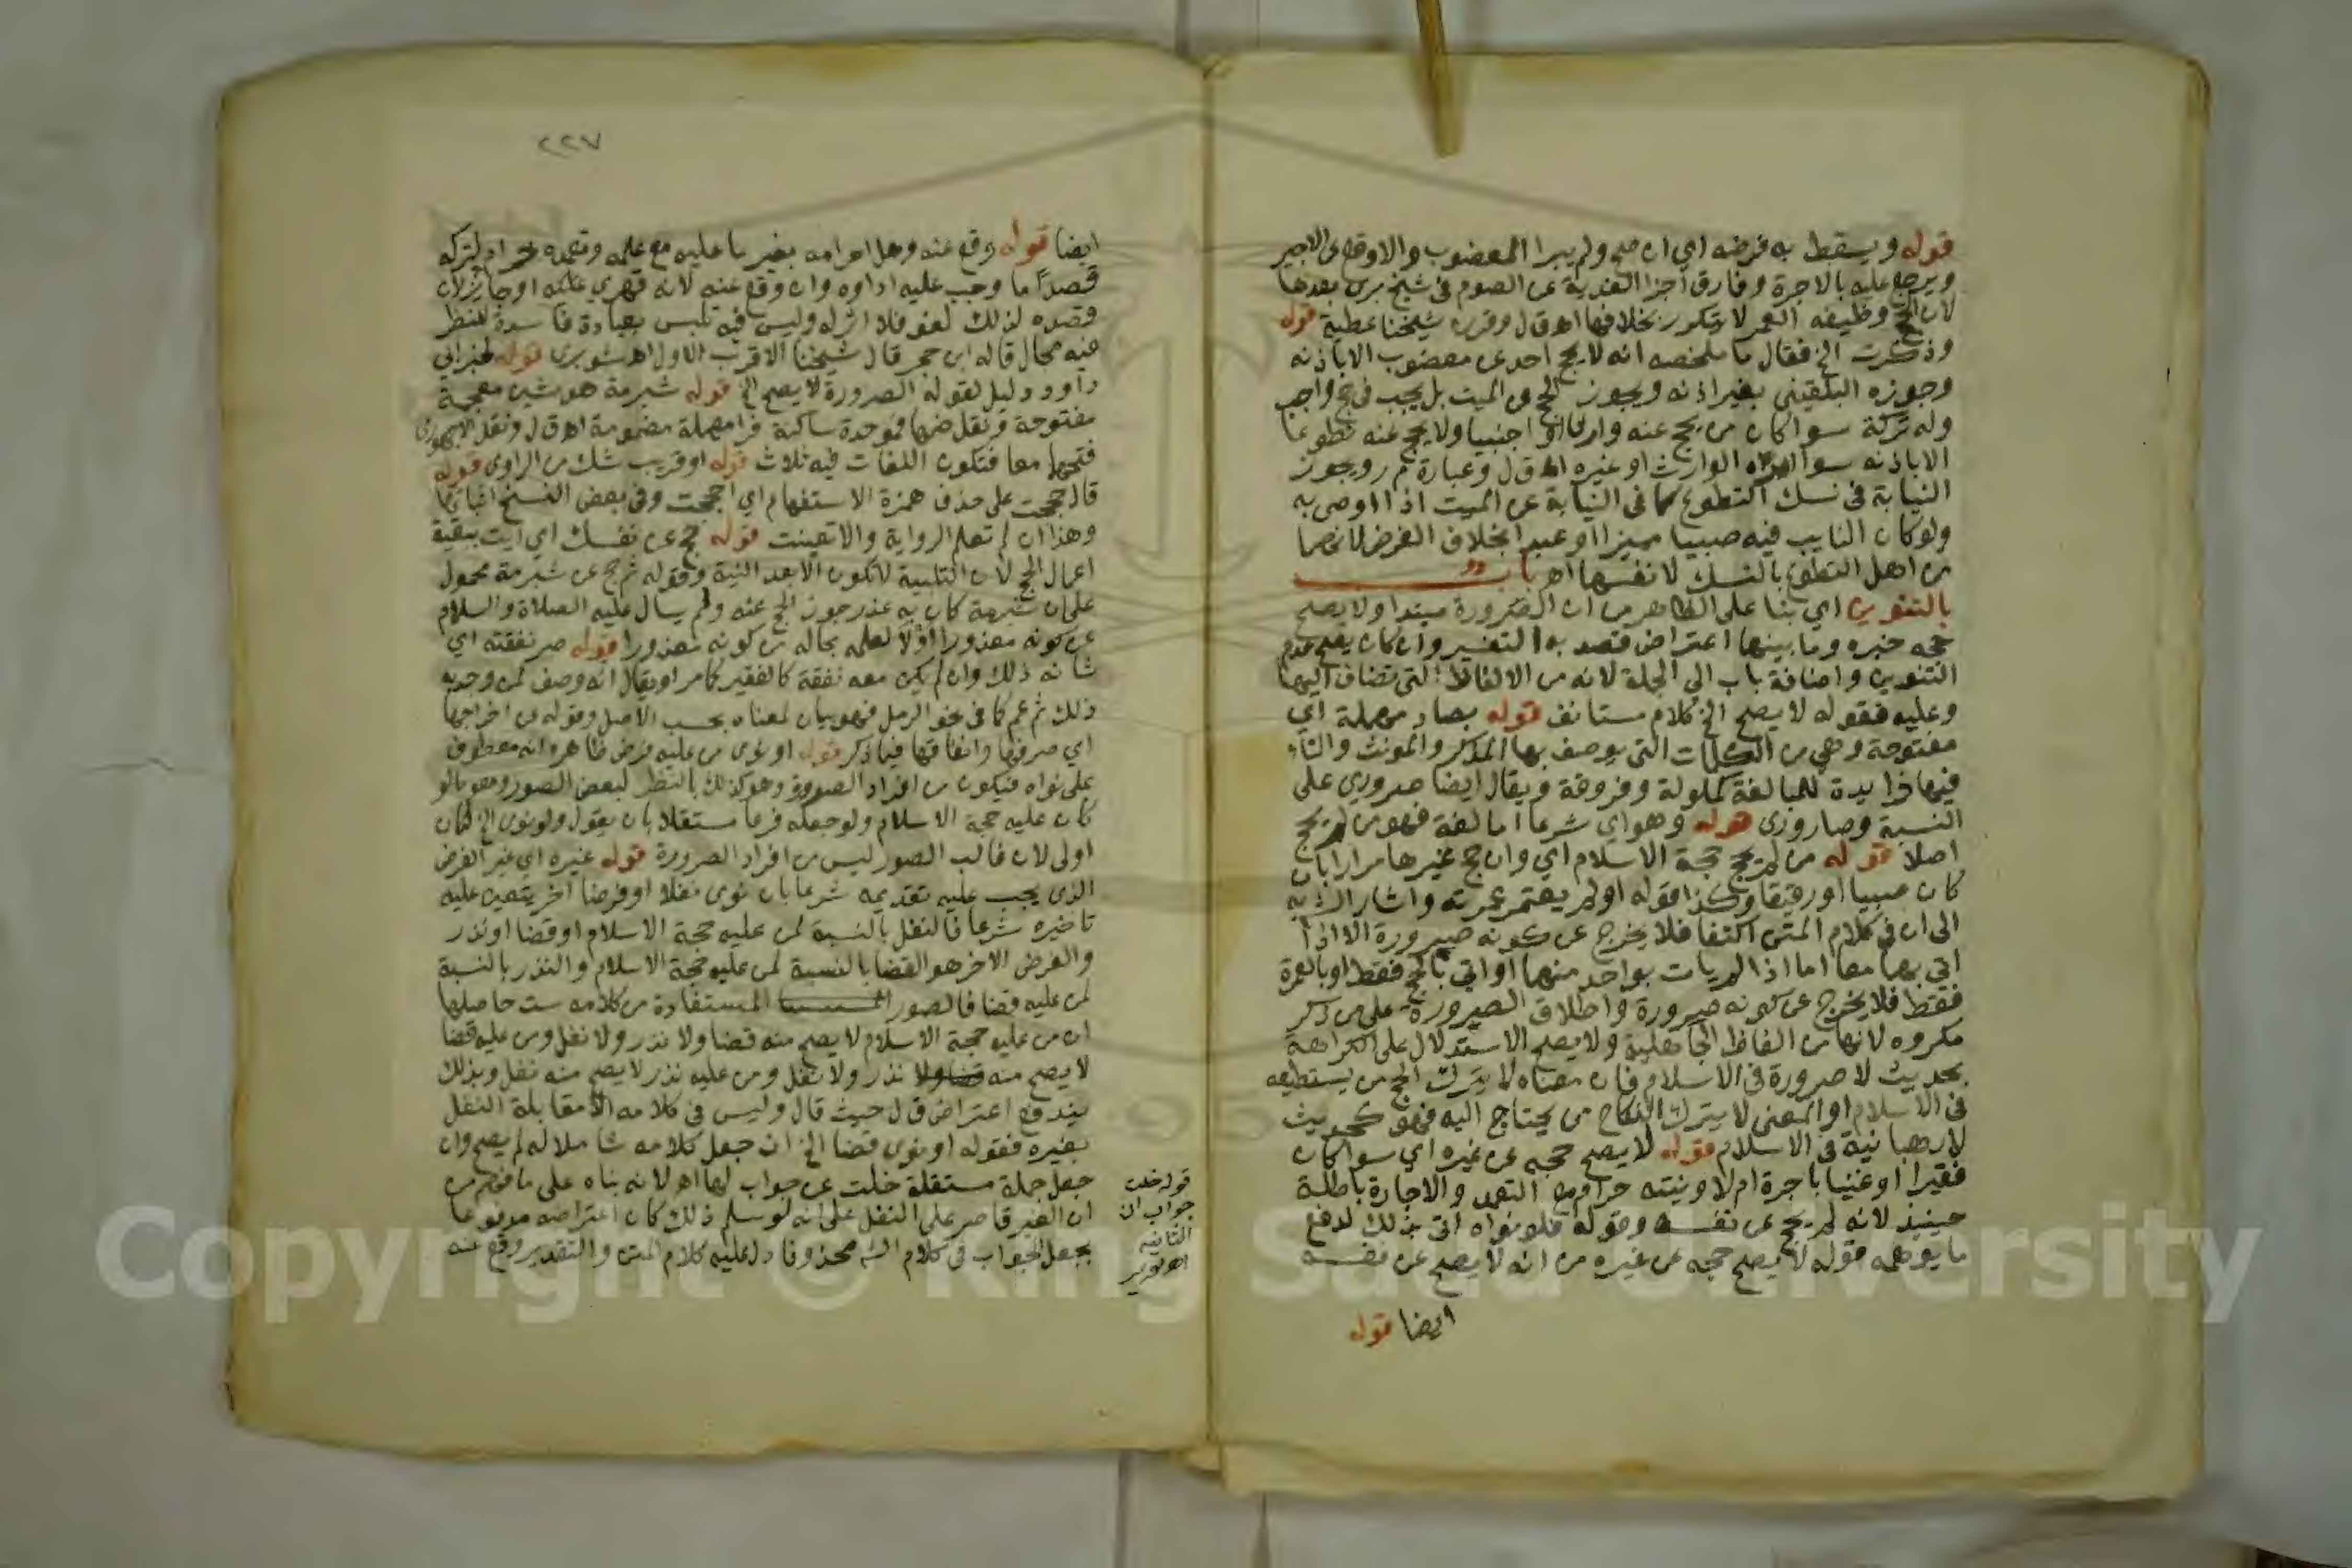 قوله ويسقط به فرضه اي ان صح ولم يبرا المعضوب والا وقع عن الاجير
ويرجع عليه بالاجرة وفارق اجزا الفدية عن الصوم في شيخ برئ بعدها
لان الحج وظيفه العمر لا يتكرر بخلافها اه ق ل وقرره شيخنا عطية قوله
وذكرت الخ فقال ما ملخصه انه لا يحج احد عن معضوب الا باذنه
وجوزه البلقيني بغير اذنه ويجوز الحج عن الميت بل يجب في حج واجب
وله تركة سوا كان من يحج عنه وارثا او اجنبيا ولا يحج عنه تطوعا
الا باذنه سوا الوارث او غيره اه ق ل وعبارة م ر ويجوز
النيابة في نسك التطوع كما في النيابة عن الميت اذا اوصى به
ولو كان النايب فيه صبيا مميزا او عبدا بخلاف الفرض لانهما
من اهل التطوع بالنسك لانفسهما اه باب
بالتنوين اي بنا على الظاهر من ان الصرورة مبتدا ولا يصح
حجه خبره وما بينهما اعتراض قصد به التفسير وان كان يصح عدم
التنوين واضافة باب الى الجملة لانه من الالفاظ التي تضاف اليها
وعليه فقوله لا يصح الخ كلام مستانف قوله بصاد مهملة اي
مفتوحة وهي من الكلمات التي يوصف بها المذكر والمونث والتاء
فيها زايدة للمبالغة كملولة وفروقة ويقال ايضا صروري على
النسبة وصاروري قوله وهو اي شرعا اما لغة فهو من لم يحج
اصلا قوله من لم يحج حجة الاسلام اي وان حج غيرها مرارا بان
كان صبيا او رقيقا وكذا قوله او لم يعتمر عمرته واشار الش به
الى ان في كلام المتن اكتفا فلا يخرج عن كونه صرورة الا اذا
اتى بهما معا اما اذا لم يات بواحد منهما او اتى بالحج فقط او بالعمرة
فقط فلا يخرج عن كونه صرورة واطلاق الصرورة على من ذكر
مكروه لانها من الفاظ الجاهلية ولا يصح الاستدلال على الكراهة
بحديث لا صرورة في الاسلام فان معناه لا يترك الحج من يستطيعه
في الاسلام او المعنى لا يترك النكاح من يحتاج اليه فهو كحديث
لا رهبانية في الاسلام قوله لا يصح حجه عن غيره اي سوا كان
فقيرا او غنيا باجرة ام لا ونيته حرام مع التعمد والاجارة باطلة
حينيذ لانه لم يحج عن نفسه وقوله فلو نواه اتى بذلك لدفع
ما يوهمه قوله لا يصح حجه عن غيره من انه لا يصح عن نفسه
ايضا قوله
٢٢٧
ايضا قوله وقع عنه وهل احرامه بغير ما عليه مع علمه وتعمده حرام لتركه
قصدا ما وجب عليه اداوه وان وقع عنه لانه قهري عليه او جايز لان
قصده لذلك لغو فلا اثر له وليس فيه تلبس بعبادة فاسدة للنظر
فيه مجال قاله ابن حجر قال شيخنا الاقرب الاول اه شوبري قوله لخبر ابي
داوود دليل لقوله الصرورة لا يصح الخ قوله شبرمة هو بشين معجمة
مفتوحة ونقل ضمها فموحدة ساكنة فرا مهملة مضمومة اه ق ل ونقل الاجهوري
فتحهما معا فتكون اللغات فيه ثلاث قوله او قريب شك من الراوي قوله
قال حججت على حذف همزة الاستفهام اي احججت وفي بعض النسخ اثباتها
وهذا ان لم تعلم الرواية والا تعينت قوله حج عن نفسك اي ايت ببقية
اعمال الحج لان التلبية لا تكون الا بعد النية وقوله ثم حج عن شبرمة محمول
على ان شبرمة كان به عذر جوز الحج عنه ولم يسال عليه الصلاة والسلام
عن كونه معذورا اولا لعلمه بحاله من كونه معذورا قوله صر نفقته اي
شانه ذلك وان لم يكن معه نفقة كالفقير كما مر او يقال انه وصف لمن وجد به
ذلك ثم عم كما في نحو الرمل فهو بيان لمعناه بحسب الاصل وقوله عن اخراجها
اي صرفها وانفاقها فيما ذكر قوله او نوى من عليه فرض ظاهره انه معطوف
على نواه فيكون من افراد الصرورة وهو كذلك بالنظر لبعض الصور وهو ما لو
كان عليه حجة الاسلام ولو جعله فرعا مستقلا بان يقول ولو نوى الخ لكان
اولى لان غالب الصور ليس من افراد الصرورة قوله غيره اي غير الفرض
الذي يجب عليه تقديمه شرعا بان نوى نفلا او فرضا اخر يتعين عليه
تاخيره شرعا فالنفل بالنسبة لمن عليه حجة الاسلام او قضا او نذر
والفرض الاخر هو القضا بالنسبة لمن عليه حجة الاسلام والنذر بالنسبة
لمن عليه قضا فالصور المستفادة من كلامه ست حاصلها
ان من عليه حجة الاسلام لا يصح منه قضا ولا نذر ولا نفل ومن عليه قضا
لا يصح منه نذر ولا نفل ومن عليه نذر لا يصح منه نفل وبذلك
يندفع اعتراض ق ل حيث قال وليس في كلامه الا مقابلة النفل
بغيره فقوله او نوى قضا الخ ان جعل كلامه شاملا له لم يصح وان
جعل جملة مستقلة خلت عن جواب لها اه لانه بناه على ما فهم من
ان الغير قاصر على النفل على انه لو سلم ذلك كان اعتراضه مدفوعا
بجعل الجواب في كلام الش محذوفا دل عليه كلام المتن والتقدير وقع عنه
قوله خلت
جواب ان
الثانية
اه تقرير